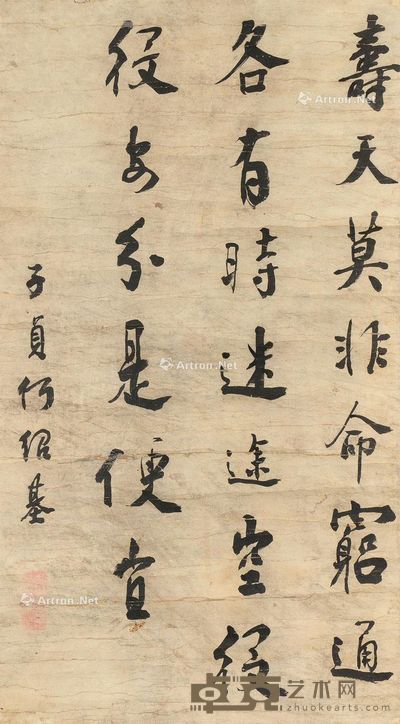 壽夭莫非命窮通
各有時迷途空役
役安分是便宜
子貞何紹基
Artron.Net
Artron.Net
Artron.Net
卓克艺术网
zhuokearts.com